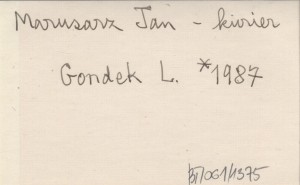 Marusarz Jan - kurier
Gondek L. *1987
51/061/1375